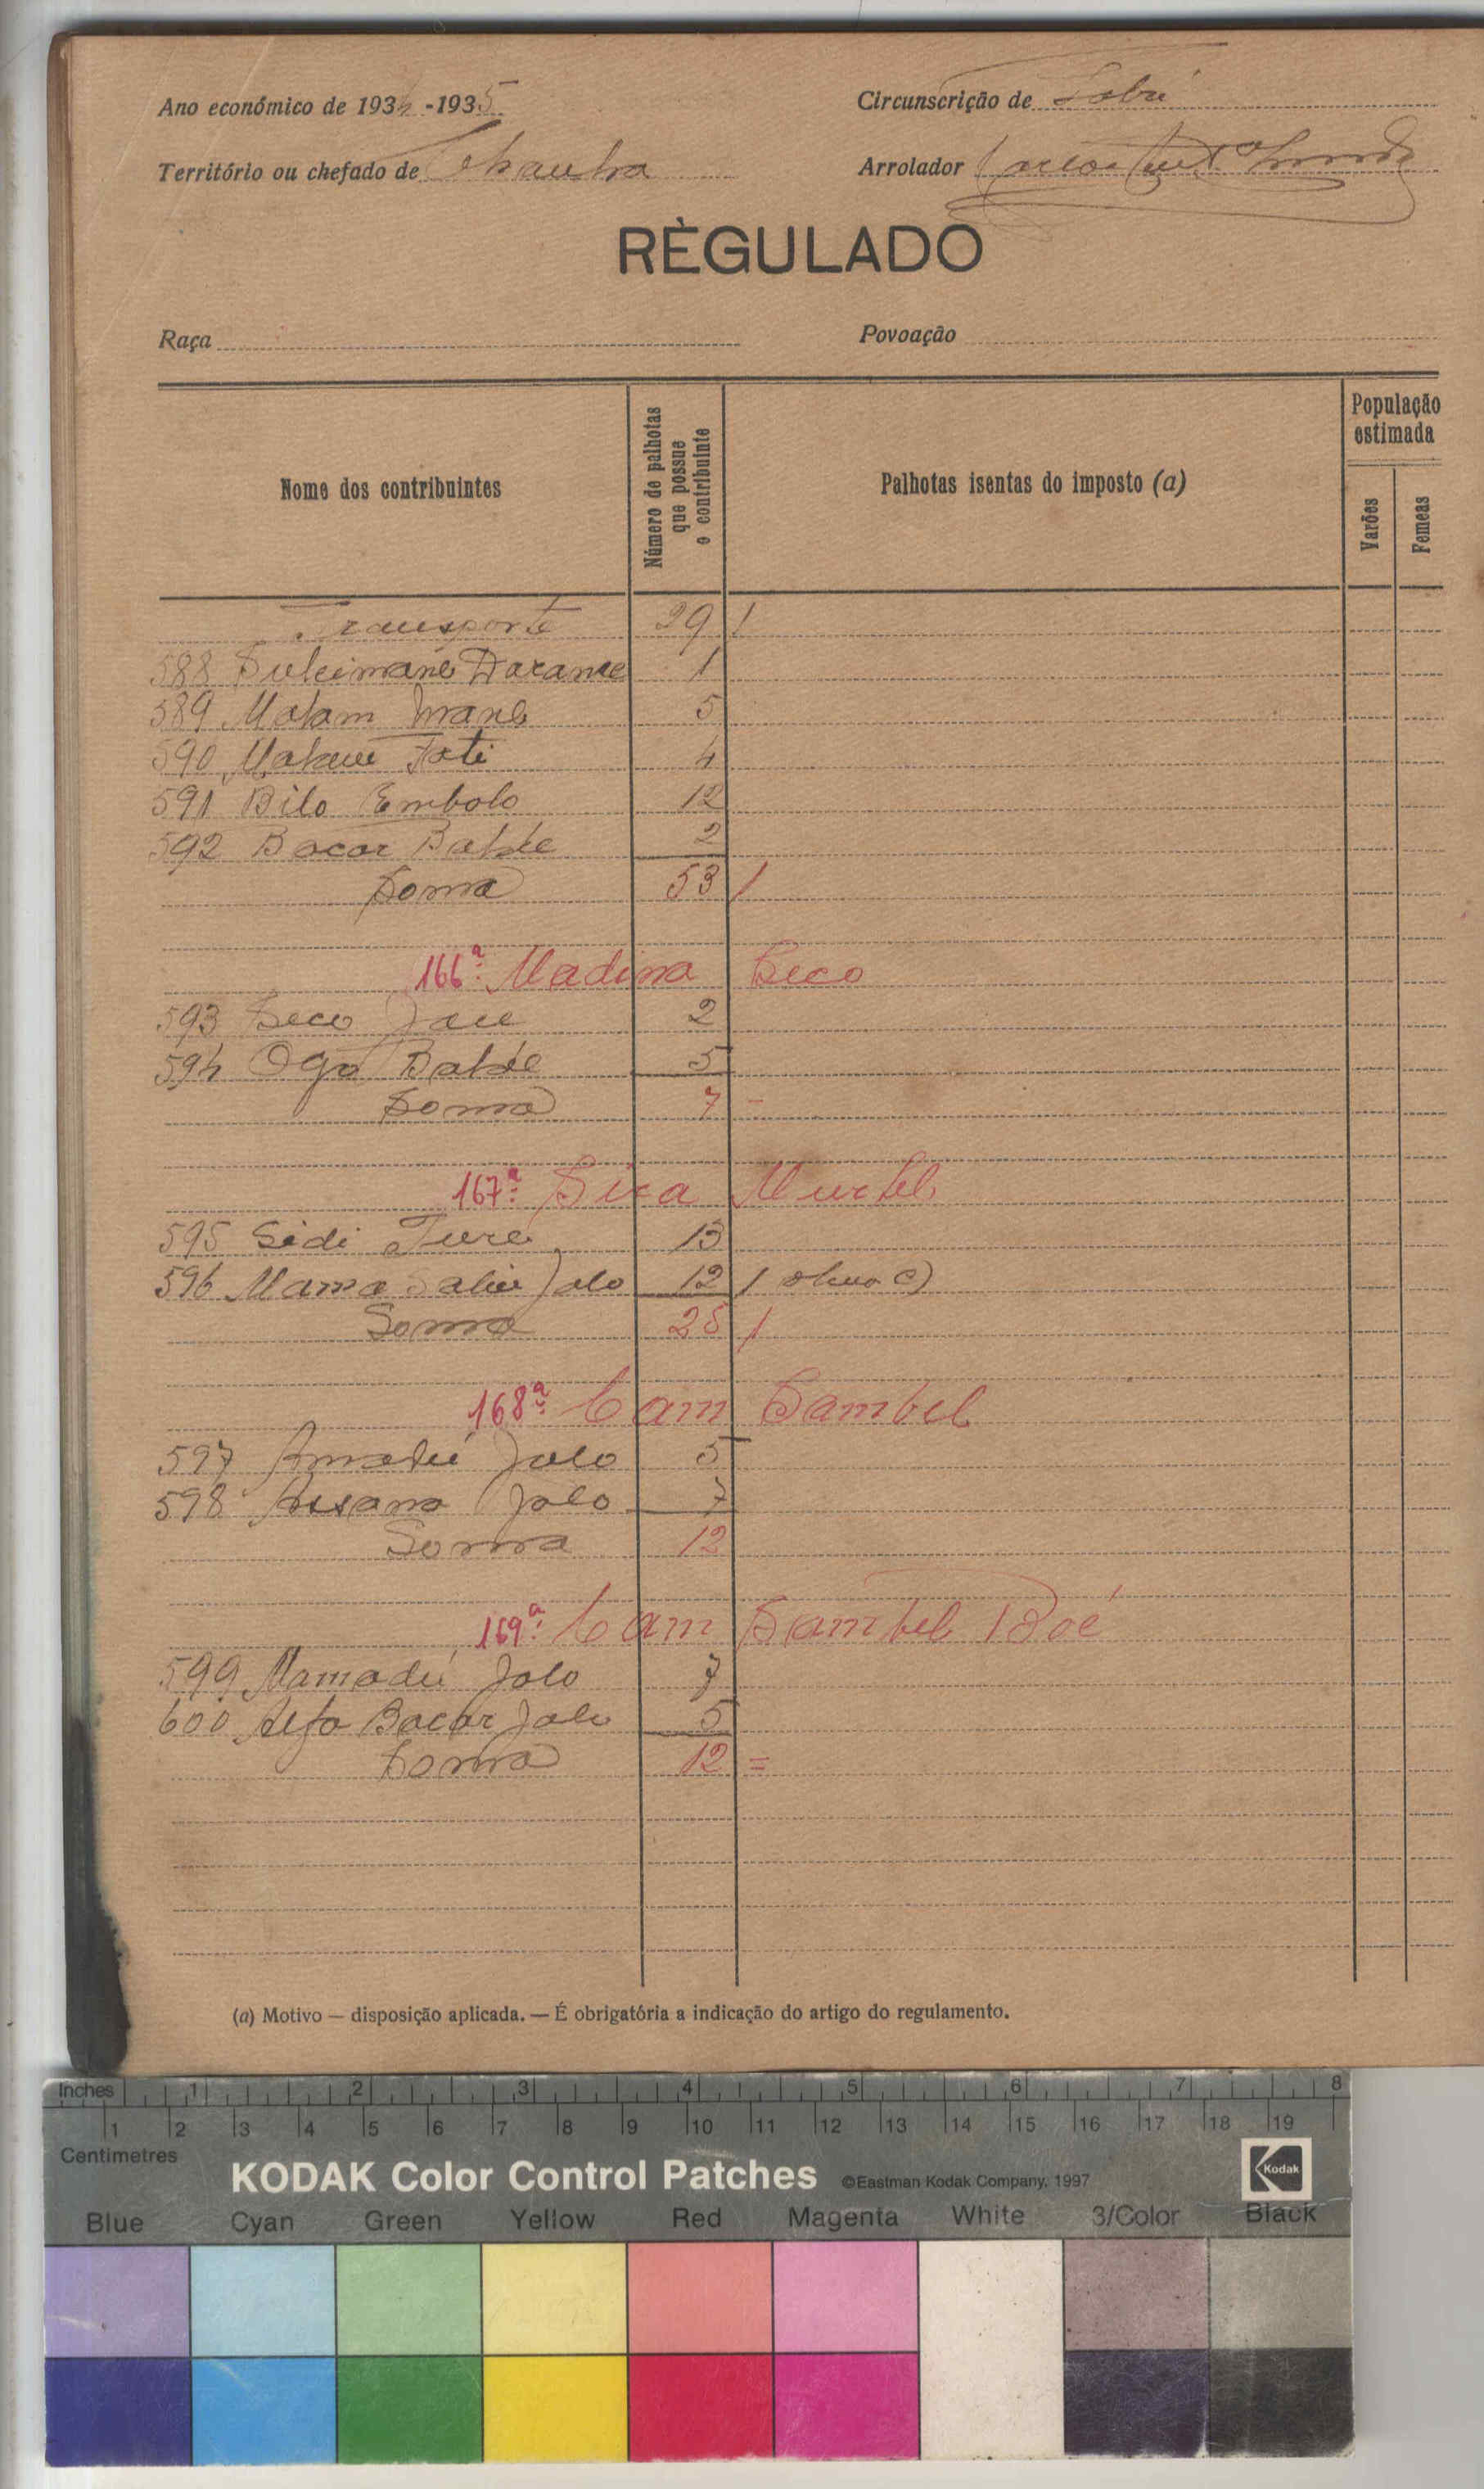 Ano económico de 1934-1935
Circunscrição de
Território ou chefado de
Arrolador
RÈGULADO
Raça
Povoação
Nome dos contribuintes
Número de palhotas que possue o contribuinte
Palhotas isentas do imposto (a)
População estimada
Varões
Femeas
Transporte 29 1
588 Suleimane Darame 1
589 Malam Mané 5
590 Fati 4
591 Bilo Embolo 12
592 Bacar Balde 2
Soma 53 1
166ª Madina Seco
593 Seco 2
594 Ogo Balde 5
Soma 7 -
167ª
595 Sidi Turé 13
596 Mama Saliu Jalo 12 1
Soma 25 1
168ª Cam Sambel
597 Amadú Jalo 5
598 Jalo 7
Soma 12
169ª Cam Sambel Boé
599 Mamadú Jalo 7
600 Alfa Bacar Jalo 5
Soma 12 =
(a) Motivo — disposição aplicada. — É obrigatória a indicação do artigo do regulamento.
Inches 1 2 3 4 5 6 7 8
1 2 3 4 5 6 7 8 9 10 11 12 13 14 15 16 17 18 19
Centimetres
KODAK Color Control Patches ©Eastman Kodak Company, 1997 Kodak
Blue Cyan Green Yellow Red Magenta White 3/Color Black